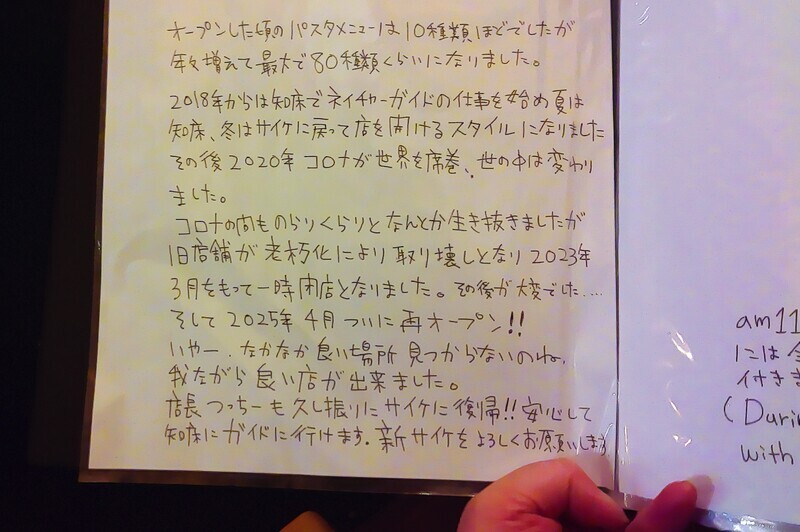 オープンした頃のパスタメニューは10種類ほどでしたが
年々増えて最大で80種類くらいになりました。
2018年からは知床でネイチャーガイドの仕事を始め夏は
知床、冬はサイケに戻って店を開けるスタイルになりました
その後2020年コロナが世界を席巻、世の中は変わり
ました。
コロナの間ものらりくらりとなんとか生き抜きましたが
旧店舗が老朽化により取り壊しとなり2023年
3月をもって一時閉店となりました。その後が大変でした....
そして2025年4月ついに再オープン!!
いやー、なかなか良い場所見つからないのね、
我ながら良い店が出来ました。
店長つっちーも久し振りにサイケに復帰!!安心して
知床にガイドに行けます。新サイケをよろしくお願いします
am11
には
付きま
(Durin
with